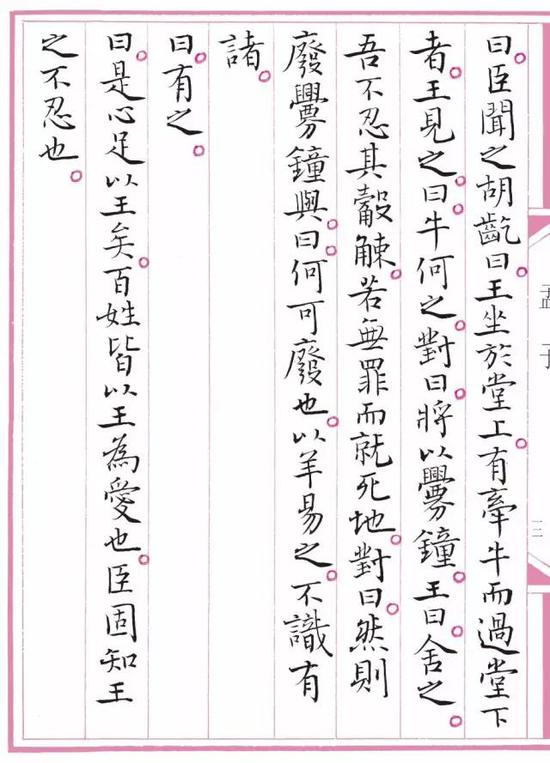 曰臣聞之胡齕曰王坐於堂上有牽牛而過堂下
者王見之曰牛何之對曰將以釁鐘王曰舍之
吾不忍其觳觫若無罪而就死地對曰然則
廢釁鐘與曰何可廢也以羊易之不識有
諸
曰有之
曰是心足以王矣百姓皆以王為愛也臣固知王
之不忍也
孟子